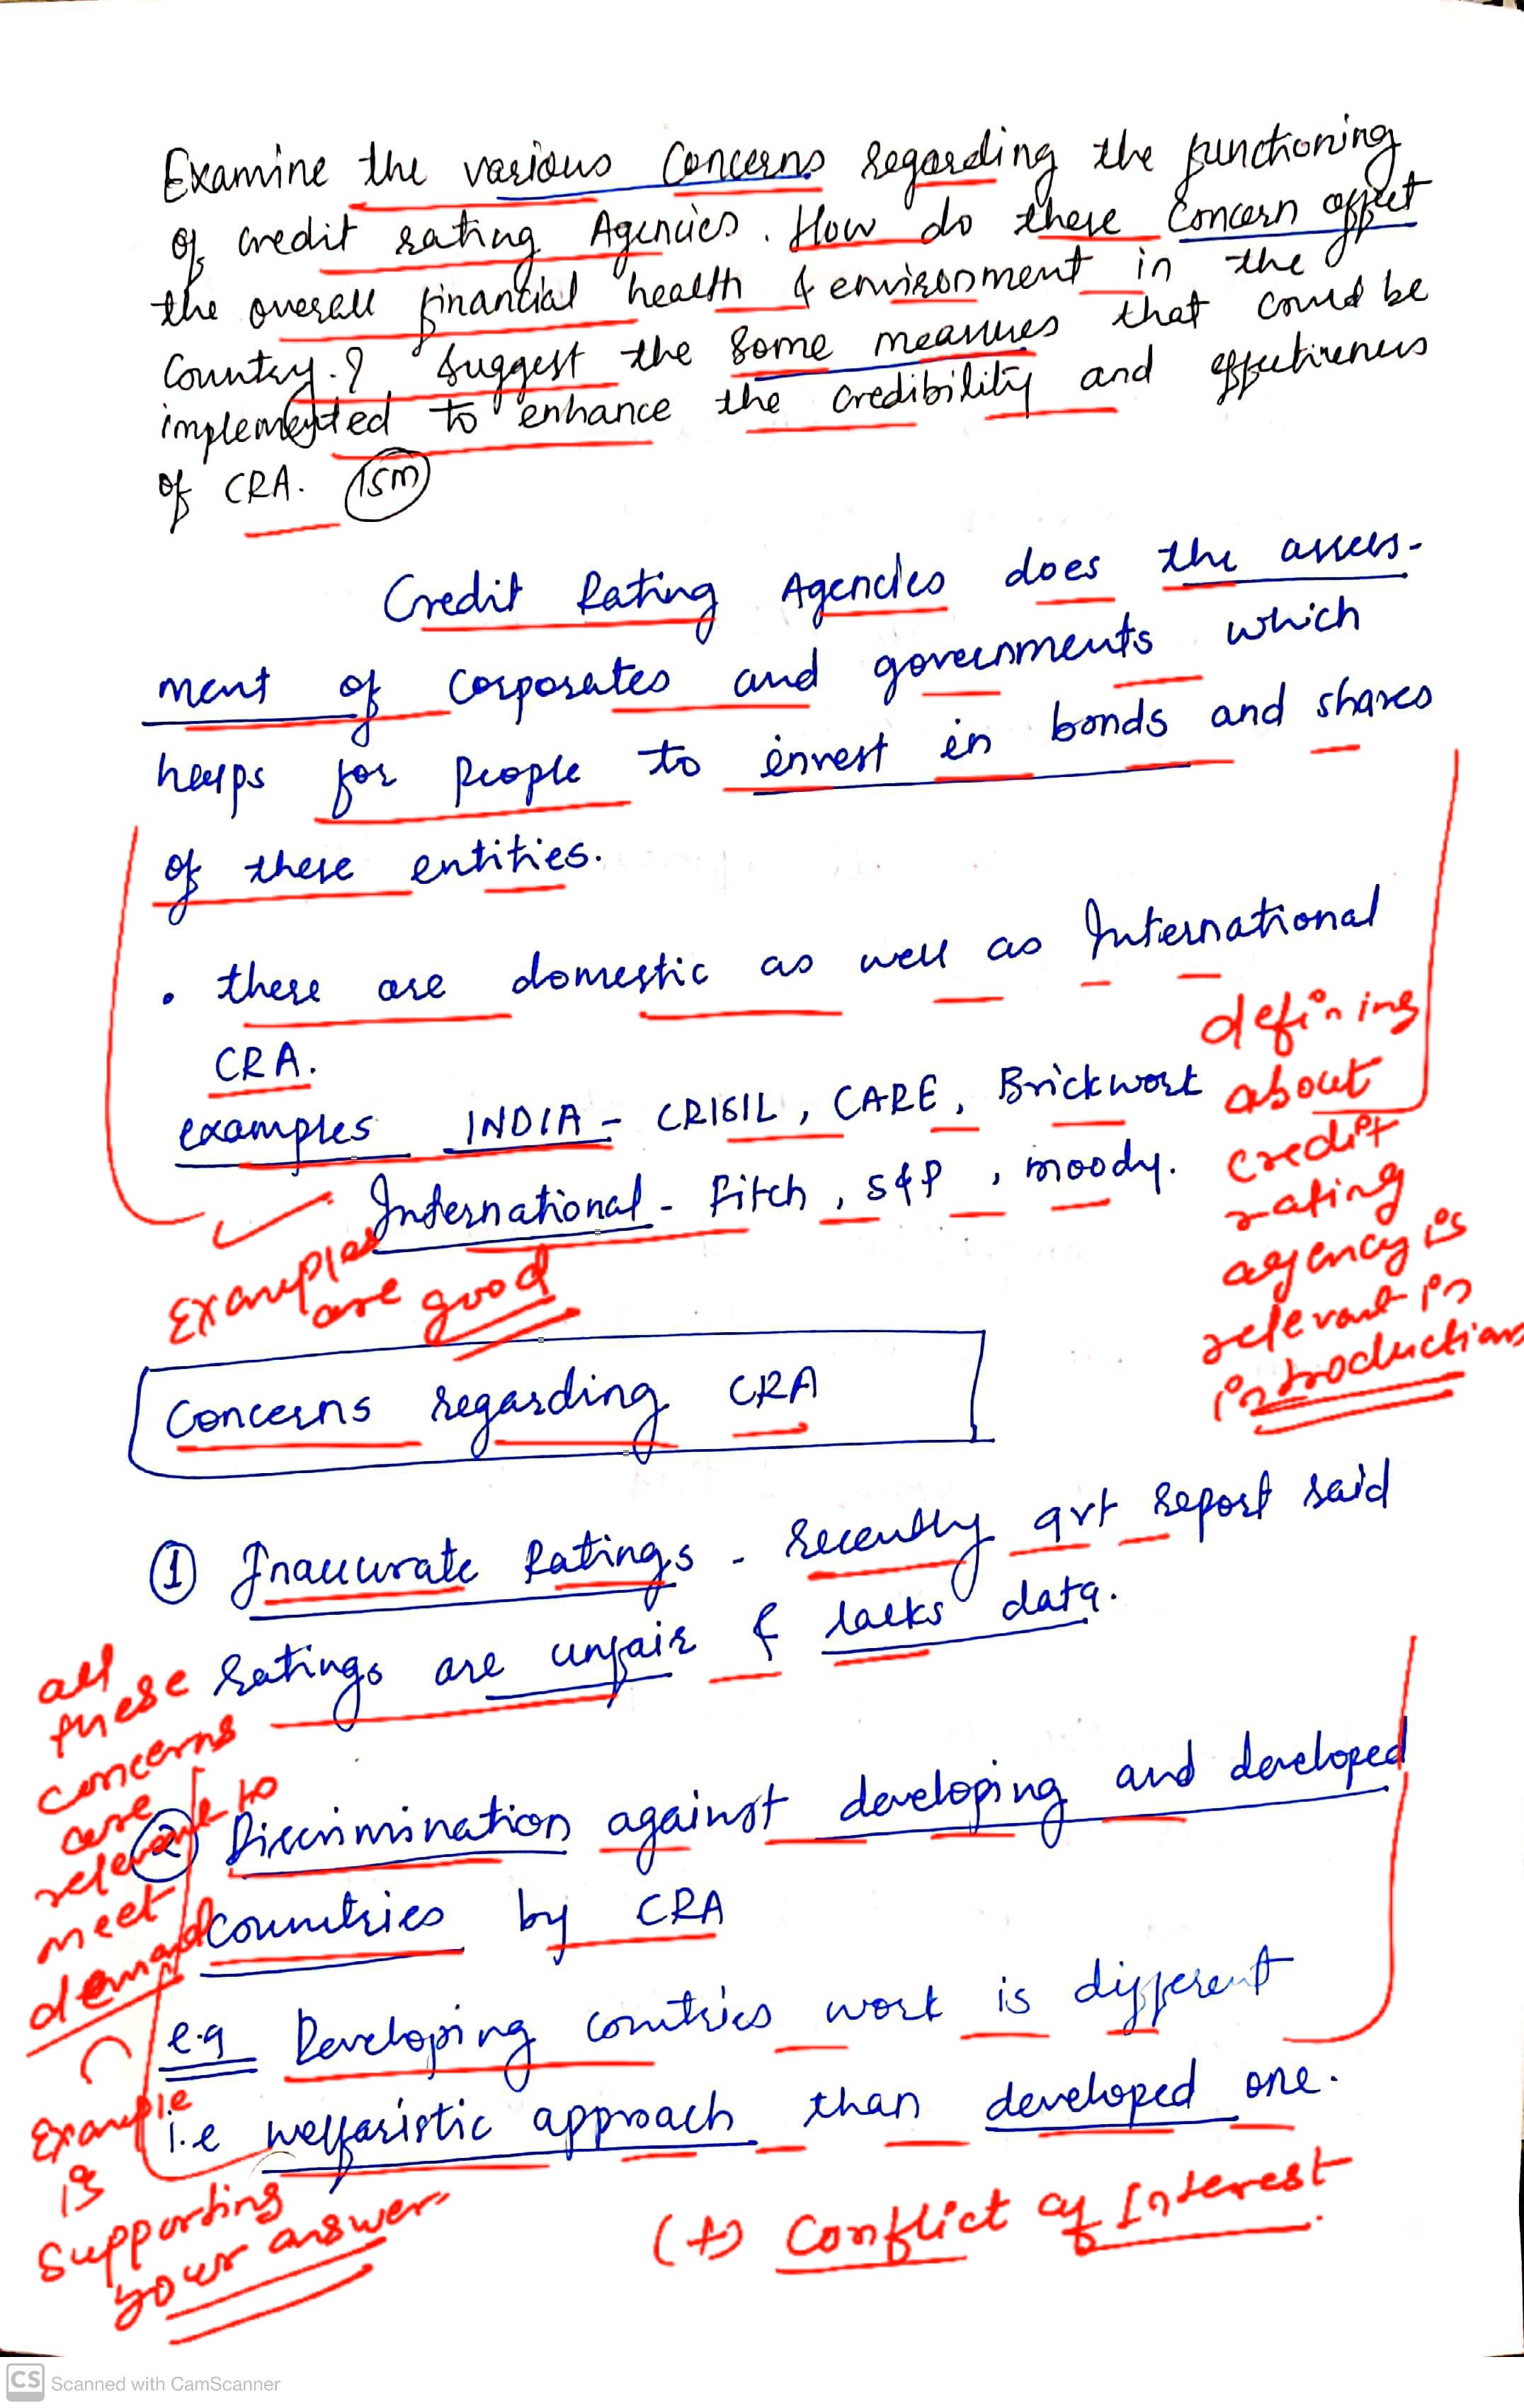 Examine the various Concerns regarding the functioning
of credit rating Agencies. How do these Concern affect
the overall financial health & environment in the
Country.? Suggest the some measures that could be
implemented to enhance the credibility and effectiveness
of CRA. 15m
Credit Rating Agencies does the assess-
ment of corporates and governments which
helps for people to invest in bonds and shares
of these entities.
• there are domestic as well as International
CRA.
examples INDIA - CRISIL, CARE, Brickwork
International - Fitch, S&P, moody.
defining
about
credit
rating
agency is
relevant in
introduction
Examples
are good
Concerns regarding CRA
① Inaccurate Ratings - Recently gvt report said
ratings are unfair & lacks data.
all
these
concerns
are
relevant to
meet
demand
② Discrimination against developing and developed
countries by CRA
e.g Developing countries work is different
i.e welfaristic approach than developed one.
Example
is
supporting
your answer
(+) Conflict of Interest
CS Scanned with CamScanner